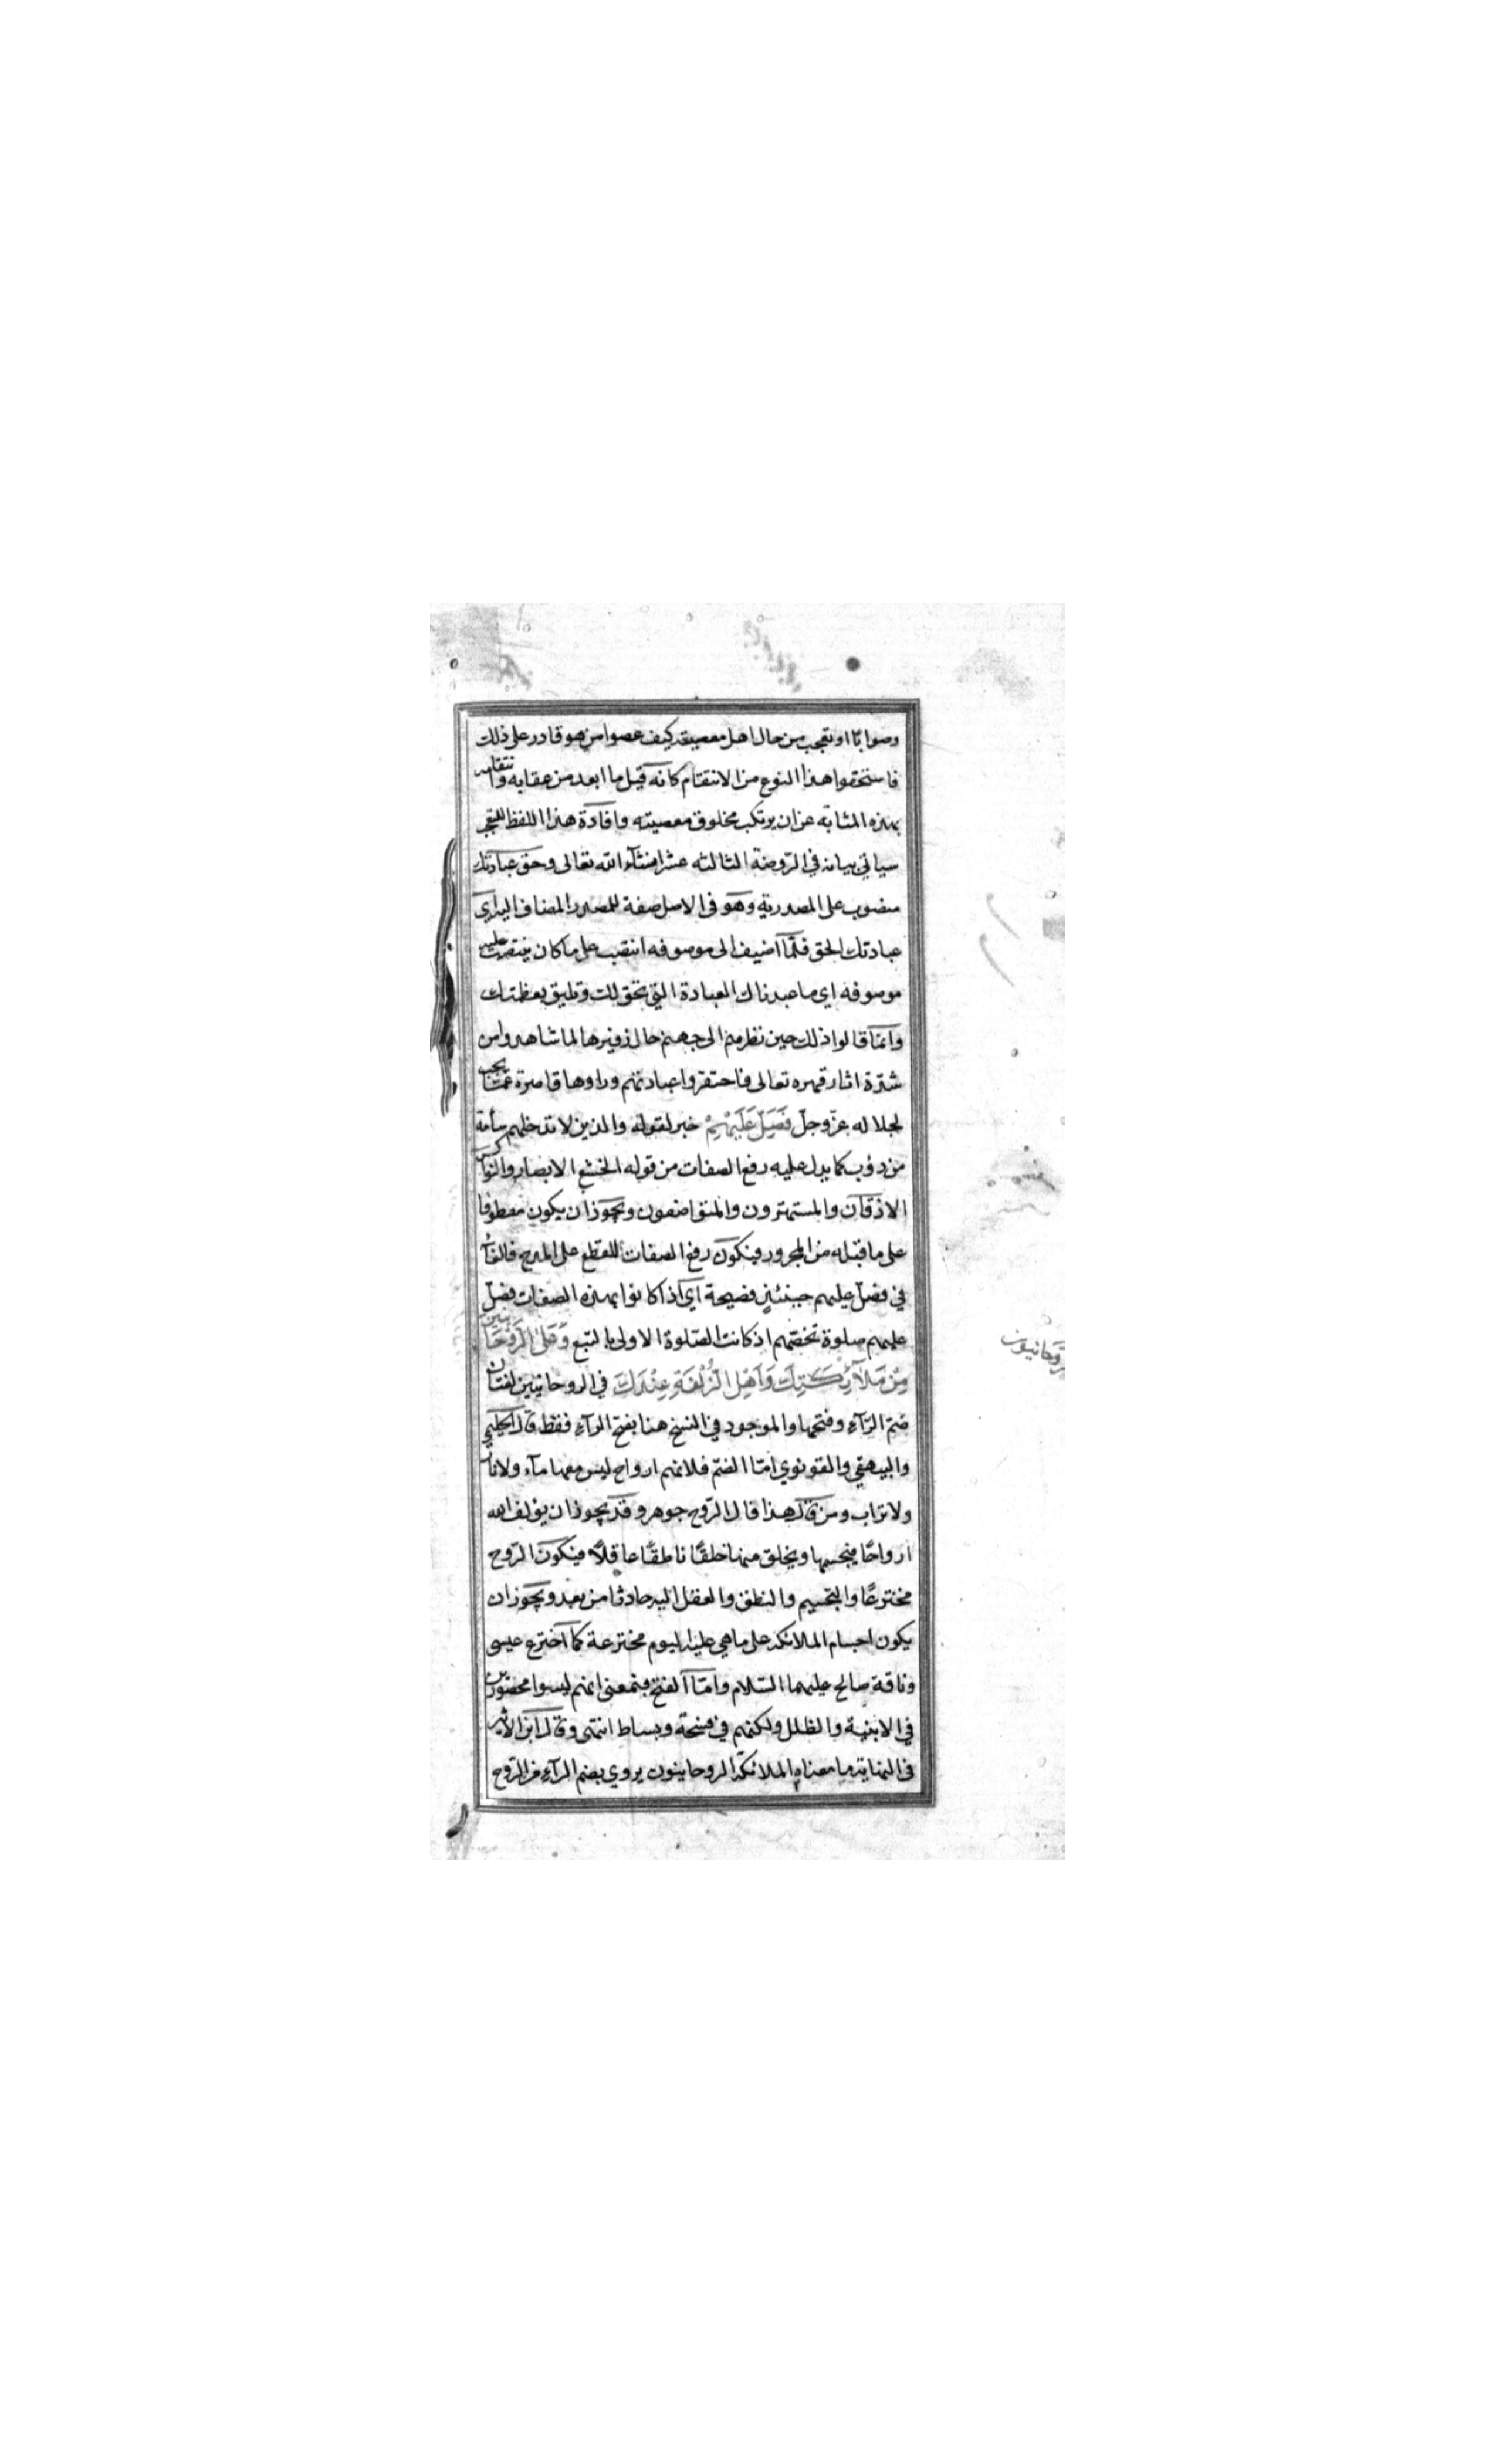 وصوابًا او تعجب من حال اهل معصيته كيف عصوا من هو قادر على ذلك
فاستحقوا هذا النوع من الانتقام كانه قيل ما ابعد من عقابه وانتقامه
بهذه المثابة عن ان يرتكب مخلوق معصيته وافادة هذا اللفظ للتعجب
سياتي بيانه في الرّوضة الثالثة عشر انشآء الله تعالى وحق عبادتك
منصوب على المصدرية وهو في الاصل صفة للمصدر المضاف اليه اي
عبادتك الحق فلمّا اضيف الى موصوفه انتصب على ما كان ينتصب عليه
موصوفه اي ما عبدناك العبادة التي تحق لك وتليق بعظمتك
وانمّا قالوا ذلك حين نظرهم الى جهنم حال زفيرها لما شاهدوا من
شدّة اثار قهره تعالى فاحتقروا عبادتهم وراوها قاصرة عمّا يجب
لجلاله عزّ وجلّ فَصَلِّ عَلَيْهِمْ خبر لقوله والذين لا تدخلهم سأمة
من دؤب كما يدل عليه رفع الصفات من قوله الخشع الابصار والنواكس
الاذقان والمستهترون والمتواضعون ويجوز ان يكون معطوفا
على ما قبله من المجرور فيكون رفع الصفات للقطع على المدح فالفآء
في فصلّ عليهم حينئذٍ فصيحة اي اذا كانوا بهذه الصفات فصلّ
عليهم صلوة تخصّهم اذ كانت الصّلوة الاولى بالتبع وَعَلَى الرَّوْحَانِيّينَ
مِنْ مَلَآئِكَتِكَ وَاَهْلِ الزُّلْفَةِ عِنْدَكَ في الروحانيين لغتان
ضمّ الرّآء وفتحها والموجود في النسخ هنا بفتح الرآء فقط قال الحليمي
والبيهقي والقونوي امّا الضمّ فلانهم ارواح ليس معها مآء ولا نار
ولا تراب ومن قال هذا قال الرّوح جوهر وقد يجوز ان يؤلف الله
ارواحًا فيجسمها ويخلق منها خلقًا ناطقًا عاقلاً فيكون الرّوح
مخترعًا والتجسيم والنطق والعقل اليه حادثا من بعد ويجوز ان
يكون اجسام الملائكة على ما هي عليه اليوم مخترعة كما اخترع عيسى
وناقة صالح عليهما السّلام وامّا الفتح فبمعنى انهم ليسوا محصورين
في الابنية والظلل ولكنهم في فسحة وبساط انتهى وقال ابن الاثير
في النهاية ما معناه الملائكة الروحانيون يروي بضم الرآء من الرّوح
روحانيون